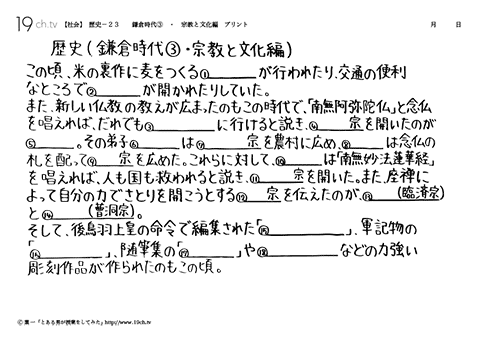 19ch.tv 【社会】 歴史－23 鎌倉時代③ ・ 宗教と文化編 プリント 月 日
歴史(鎌倉時代③・宗教と文化編)
この頃、米の裏作に麦をつくる①______が行われたり、交通の便利
なところで②______が開かれたりしていた。
また、新しい仏教の教えが広まったのもこの時代で、「南無阿弥陀仏」と念仏
を唱えれば、だれでも③______に行けると説き、④___宗を開いたのが
⑤______。その弟子⑥______は⑦___宗を農村に広め、⑧______は念仏の
札を配って⑨___宗を広めた。これらに対して、⑩______は「南無妙法蓮華経」
を唱えれば、人も国も救われると説き、⑪___宗を開いた。また、座禅に
よって自分の力でさとりを開こうとする⑫___宗を伝えたのが、⑬______(臨済宗)
と⑭______(曹洞宗)。
そして、後鳥羽上皇の命令で編集された「⑮______」、軍記物の
「⑯______」、随筆集の「⑰______」や⑱______などの力強い
彫刻作品が作られたのもこの頃。
© 葉一「とある男が授業をしてみた」http://www.19ch.tv